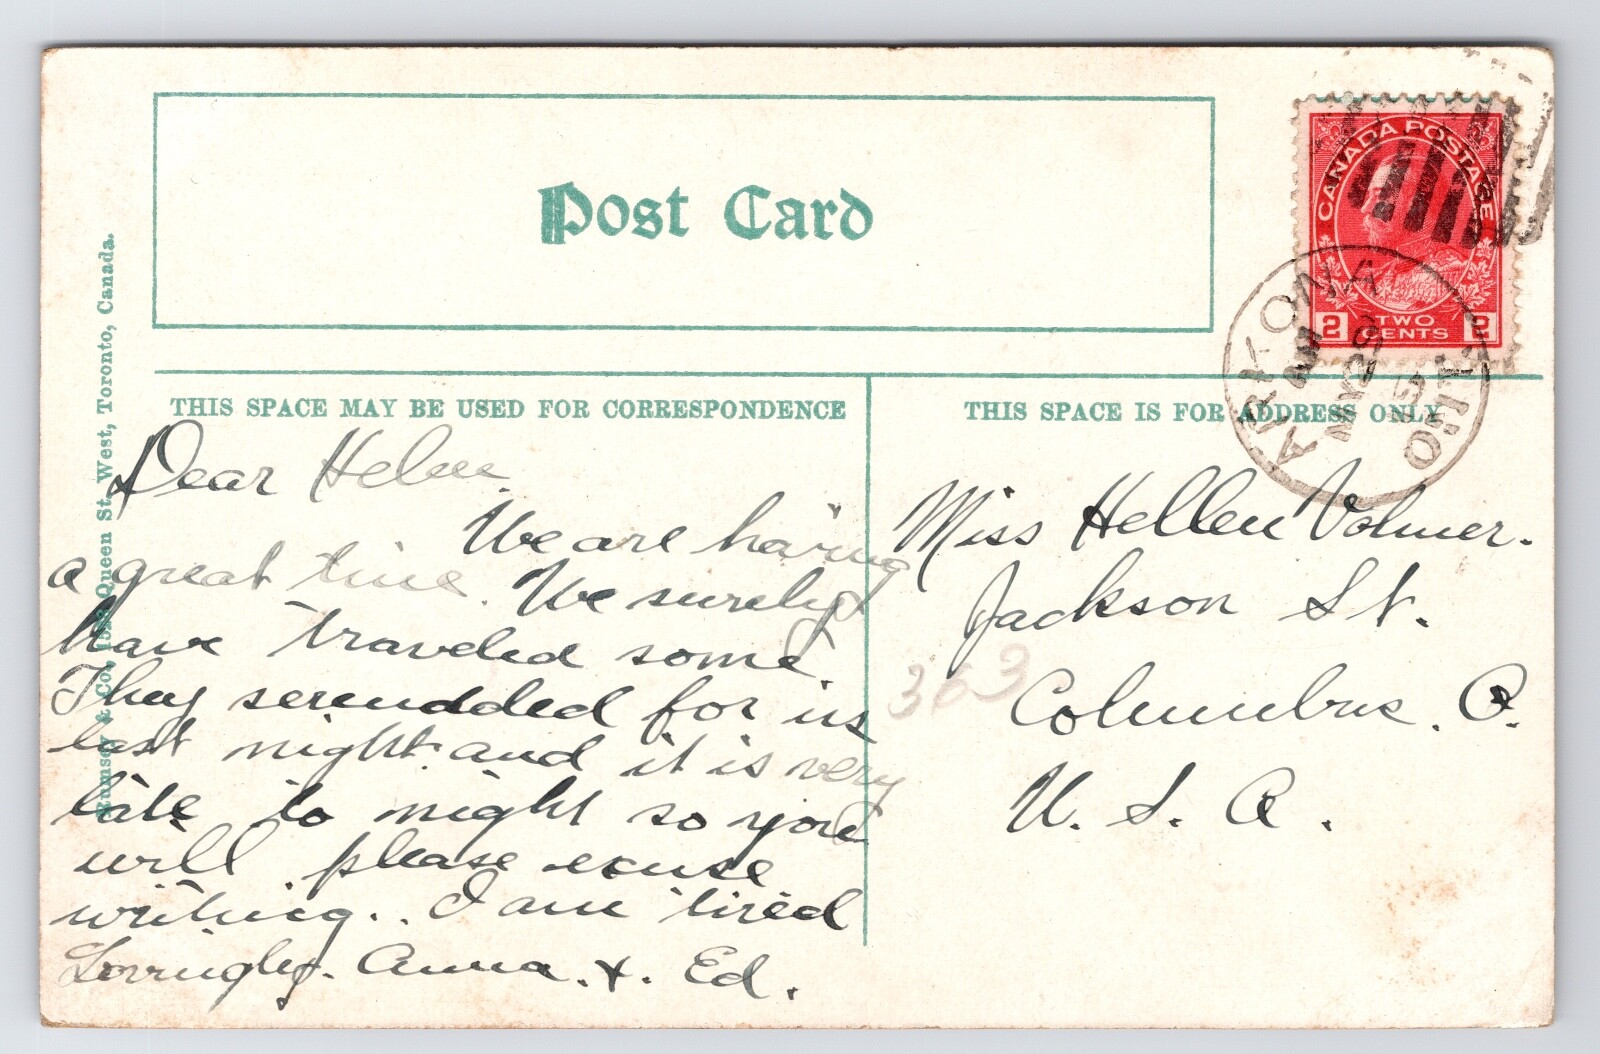 Post Card
CANADA POSTAGE
2 TWO CENTS 2
ARKONA
AM
MY 29
ONT
Rumsey & Co., Queen St. West, Toronto, Canada.
THIS SPACE MAY BE USED FOR CORRESPONDENCE
THIS SPACE IS FOR ADDRESS ONLY
Dear Helen.
We are having
a great time. We surely
have traveled some.
They serendded for us
last night and it is very
late to night so you
will please excuse
writing.. I am tired
Lovingly. Anna. +. Ed.
Miss Hellen Volmer.
Jackson St.
363
Columbus. O.
U. S. A.